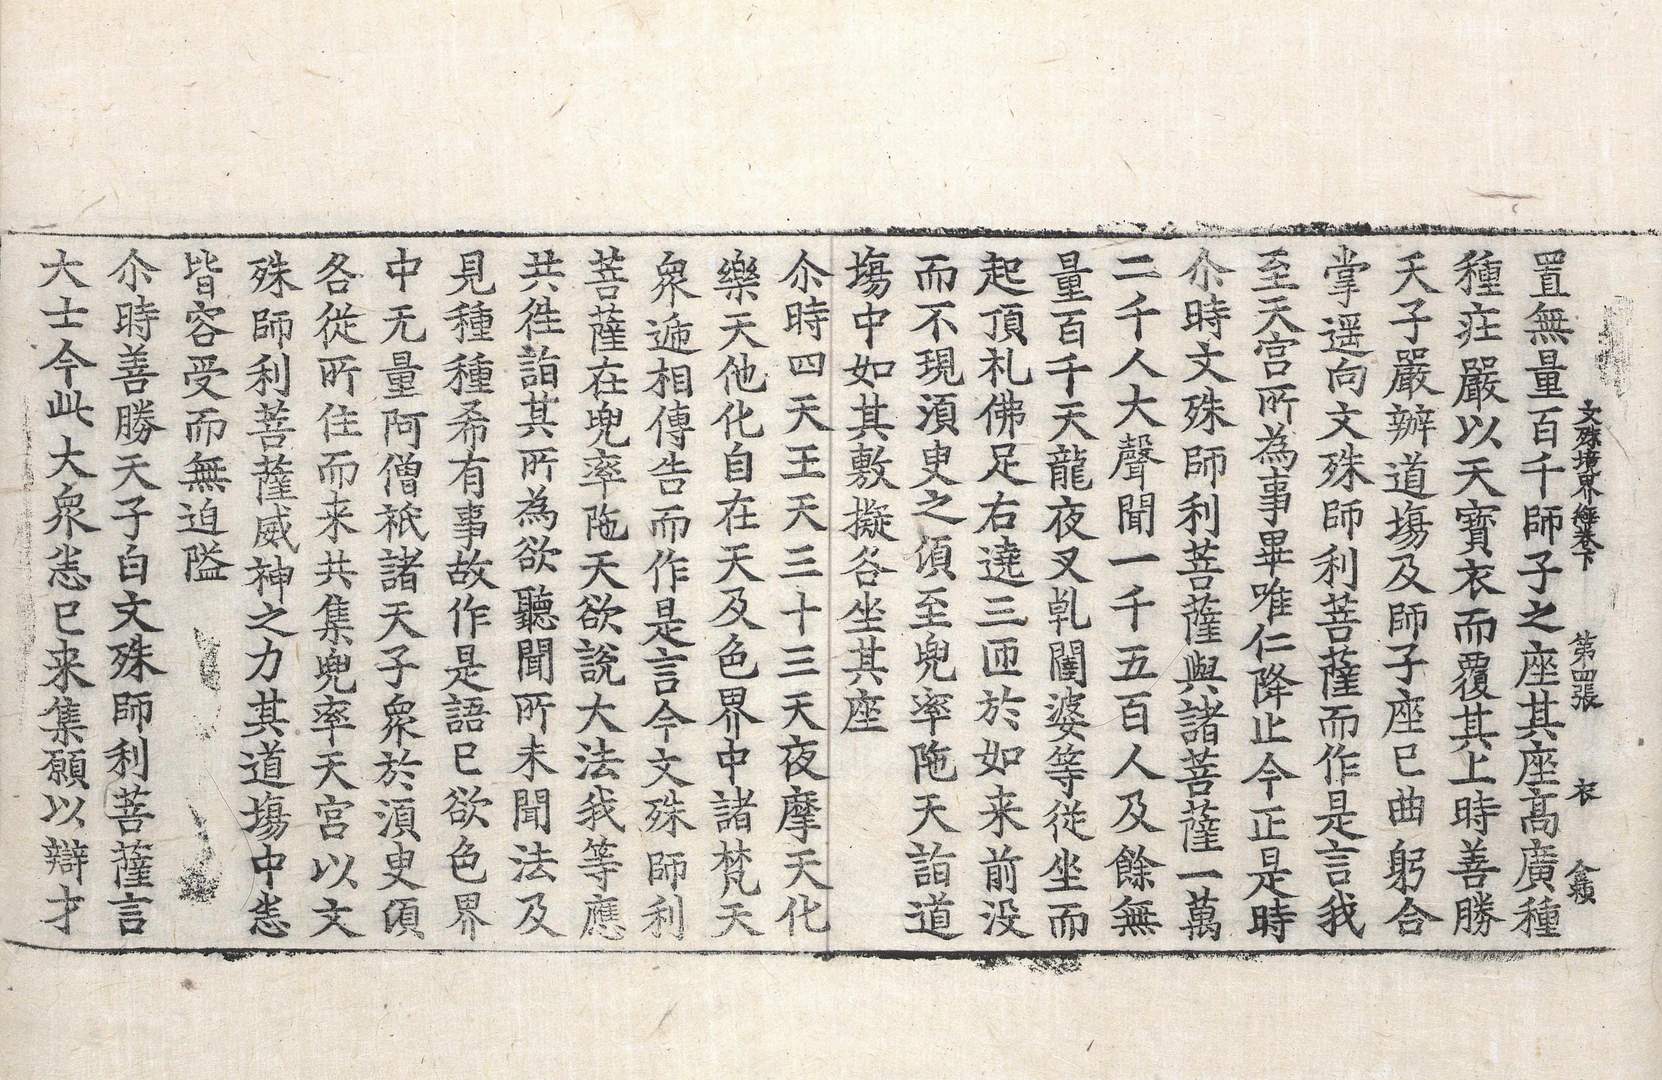 文殊境界經卷下 第四張 衣
置無量百千師子之座其座高廣種
種疘嚴以天寶衣而覆其上時善勝
天子嚴辦道塲及師子座巳曲躬合
掌遥向文殊師利菩薩而作是言我
至天宫所為事畢唯仁降止今正是時
尒時文殊師利菩薩與諸菩薩一萬
二千人大聲聞一千五百人及餘無
量百千天龍夜叉乹闥婆等從坐而
起頂礼佛足右遶三匝於如来前没
而不現湏㬰之頃至兜率陁天詣道
塲中如其敷擬各坐其座
尒時四天王天三十三天夜摩天化
樂天他化自在天及色界中諸梵天
衆遞相傳告而作是言今文殊師利
菩薩在兜率陁天欲説大法我等應
共徃詣其所為欲聽聞所未聞法及
見種種希有事故作是語巳欲色界
中无量阿僧祇諸天子衆於湏㬰頃
各從所住而来共集兜率天宫以文
殊師利菩薩威神之力其道塲中悉
皆容受而無迫隘
尒時善勝天子白文殊師利菩薩言
大士今此大衆悉巳来集願以辯才